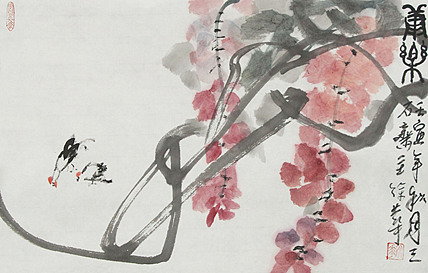 康樂
壬寅年秋月三
石齋主徐